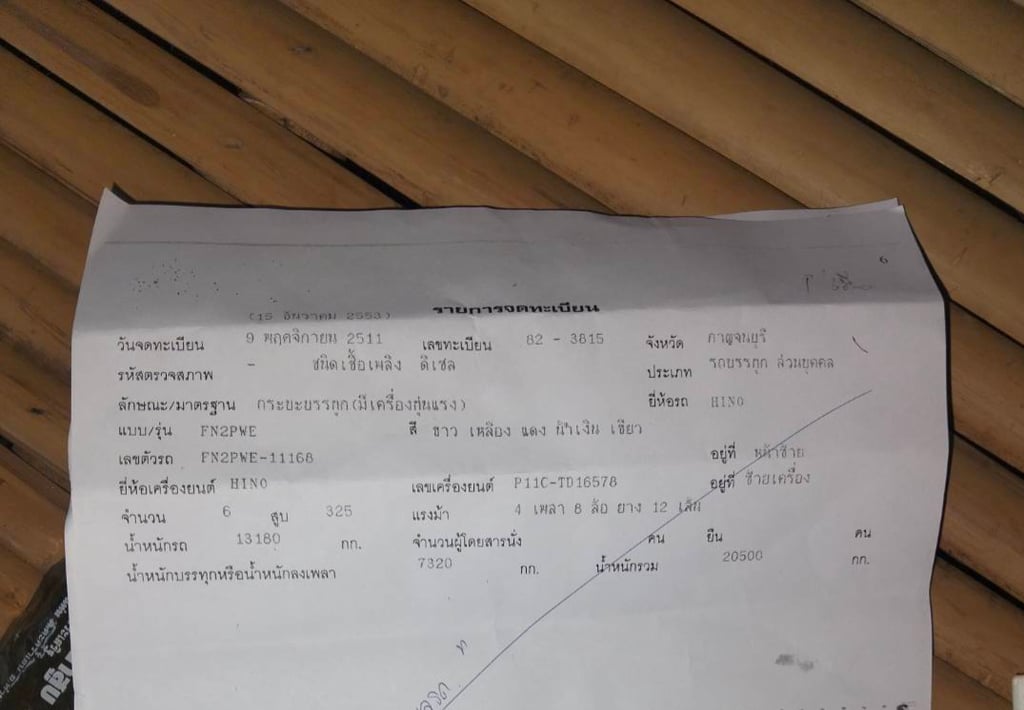 6
รายการจดทะเบียน
(15 ธันวาคม 2553)
วันจดทะเบียน 9 พฤศจิกายน 2511 เลขทะเบียน 82 - 3815 จังหวัด กาญจนบุรี
รหัสตรวจสภาพ - ชนิดเชื้อเพลิง ดีเซล ประเภท รถบรรทุก ส่วนบุคคล
ลักษณะ/มาตรฐาน กระบะบรรทุก(มีเครื่องทุ่นแรง) ยี่ห้อรถ HINO
แบบ/รุ่น FN2PWE สี ขาว เหลือง แดง น้ำเงิน เขียว
เลขตัวรถ FN2PWE-11168 อยู่ที่ หน้าซ้าย
ยี่ห้อเครื่องยนต์ HINO เลขเครื่องยนต์ P11C-TD16578 อยู่ที่ ซ้ายเครื่อง
จำนวน 6 สูบ 325 แรงม้า 4 เพลา 8 ล้อ ยาง 12 เส้น
น้ำหนักรถ 13180 กก. จำนวนผู้โดยสารนั่ง คน ยืน คน
น้ำหนักบรรทุกหรือน้ำหนักลงเพลา 7320 กก. น้ำหนักรวม 20500 กก.